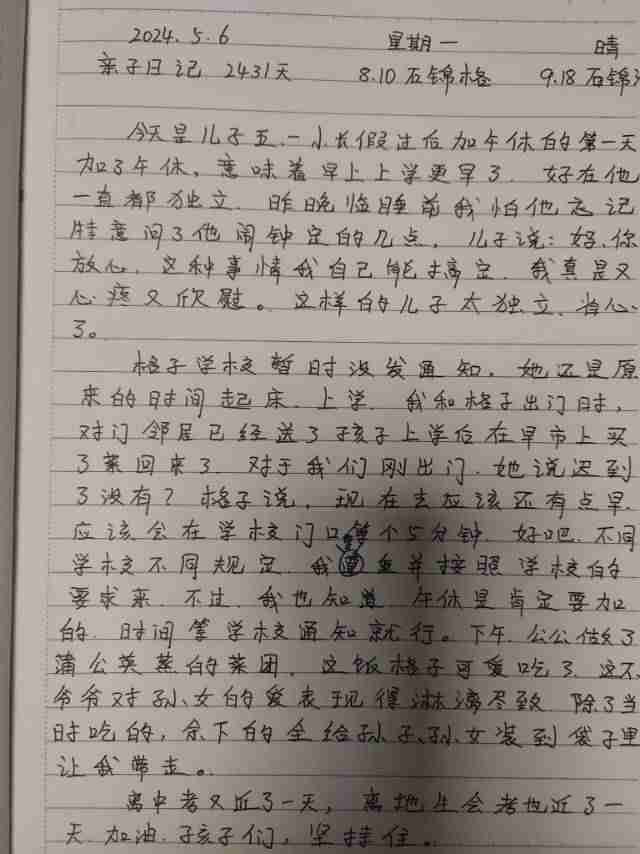 2024.5.6 星期一 晴
亲子日记 2431天 8.10石锦格 9.18石锦
今天是儿子五.一小长假过后加午休的第一天
加了午休,意味着早上上学更早了.好在他
一直都独立.昨晚临睡前我怕他忘记
特意问了他闹钟定的几点.儿子说:妈.你
放心.这种事情我自己能搞定.我真是又
心疼又欣慰。这样的儿子太独立.省心
了。
格子学校暂时没发通知.她还是原
来的时间起床.上学.我和格子出门时,
对门邻居已经送了孩子上学后在早市上买
了菜回来了.对于我们刚出门.她说迟到
了没有?格子说,现在去应该还有点早.
应该会在学校门口等个5分钟.好吧.不同
学校不同规定.我要重并按照学校的
要求来.不过.我也知道.午休是肯定要加
的.时间等学校通知就行。下午.公公做了
蒲公英蒸的菜团.这饭格子可爱吃了.这不.
爷爷对孙女的爱表现得淋漓尽致.除了当
时吃的,余下的全给孙子.孙女装到袋子里
让我带走。
离中考又近了一天,离地生会考也近了一
天.加油.孩子们,坚持住。